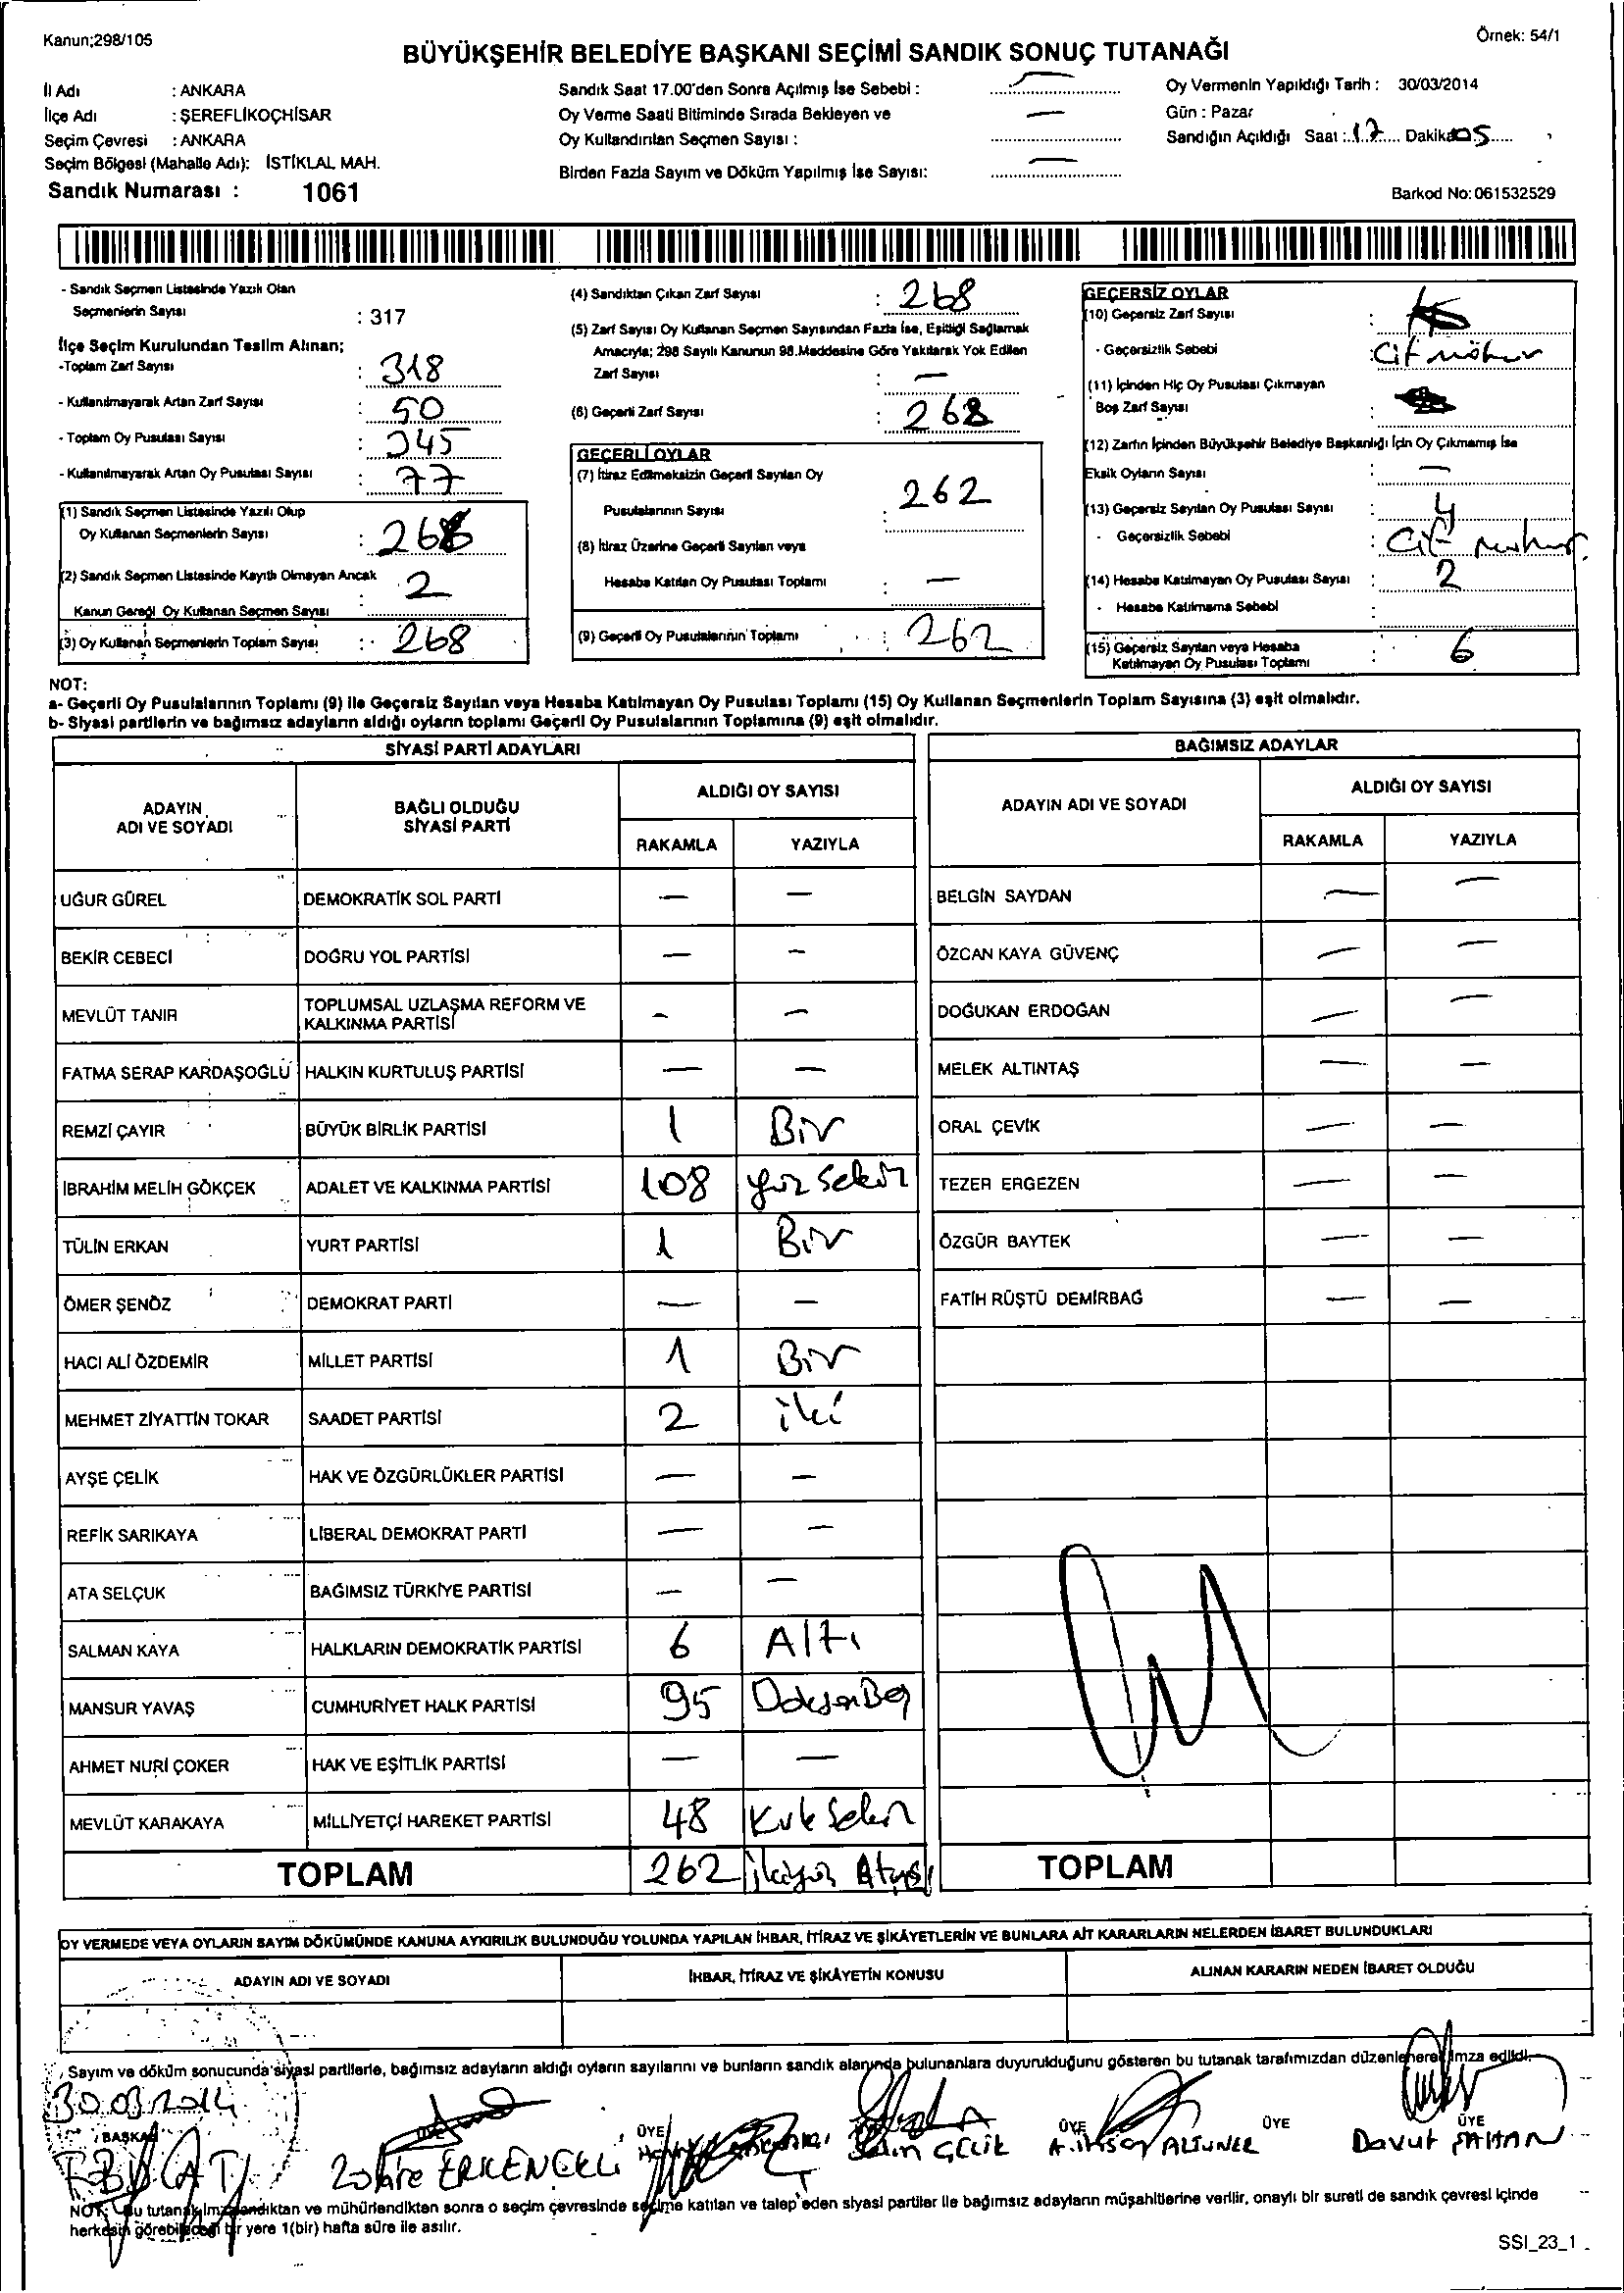 Kanun;298/105
Örnek: 54/1
BÜYÜKŞEHİR BELEDİYE BAŞKANI SEÇİMİ SANDIK SONUÇ TUTANAĞI
İl Adı : ANKARA
İlçe Adı : ŞEREFLİKOÇHİSAR
Seçim Çevresi : ANKARA
Seçim Bölgesi (Mahalle Adı): İSTİKLAL MAH.
Sandık Numarası : 1061
Sandık Saat 17.00'den Sonra Açılmış İse Sebebi : —
Oy Verme Saati Bitiminde Sırada Bekleyen ve
Oy Kullandırılan Seçmen Sayısı : —
Birden Fazla Sayım ve Döküm Yapılmış İse Sayısı: —
Oy Vermenin Yapıldığı Tarih : 30/03/2014
Gün : Pazar
Sandığın Açıldığı Saat : 17 Dakika 05
Barkod No: 061532529
- Sandık Seçmen Listesinde Yazılı Olan
Seçmenlerin Sayısı : 317
İlçe Seçim Kurulundan Teslim Alınan;
-Toplam Zarf Sayısı : 318
- Kullanılmayarak Artan Zarf Sayısı : 50
- Toplam Oy Pusulası Sayısı : 345
- Kullanılmayarak Artan Oy Pusulası Sayısı : 77
(1) Sandık Seçmen Listesinde Yazılı Olup
Oy Kullanan Seçmenlerin Sayısı :
(2) Sandık Seçmen Listesinde Kayıtlı Olmayan Ancak
Kanun Gereği Oy Kullanan Seçmen Sayısı : 2
(3) Oy Kullanan Seçmenlerin Toplam Sayısı : 268
(4) Sandıktan Çıkan Zarf Sayısı : 268
(5) Zarf Sayısı Oy Kullanan Seçmen Sayısından Fazla İse, Eşitliği Sağlamak
Amacıyla; 298 Sayılı Kanunun 98.Maddesine Göre Yakılarak Yok Edilen
Zarf Sayısı : —
(6) Geçerli Zarf Sayısı : 268
GEÇERLİ OYLAR
(7) İtiraz Edilmeksizin Geçerli Sayılan Oy
Pusulalarının Sayısı : 262
(8) İtiraz Üzerine Geçerli Sayılan veya
Hesaba Katılan Oy Pusulası Toplamı : —
(9) Geçerli Oy Pusulalarının Toplamı : 262
GEÇERSİZ OYLAR
(10) Geçersiz Zarf Sayısı :
- Geçersizlik Sebebi : Cif möhür
(11) İçinden Hiç Oy Pusulası Çıkmayan
Boş Zarf Sayısı :
(12) Zarfın İçinden Büyükşehir Belediye Başkanlığı İçin Oy Çıkmamış İse
Eksik Oyların Sayısı : —
(13) Geçersiz Sayılan Oy Pusulası Sayısı : 4
- Geçersizlik Sebebi : Cif
(14) Hesaba Katılmayan Oy Pusulası Sayısı : 2
- Hesaba Katılmama Sebebi :
(15) Geçersiz Sayılan veya Hesaba
Katılmayan Oy Pusulası Toplamı : 6
NOT:
a- Geçerli Oy Pusulalarının Toplamı (9) ile Geçersiz Sayılan veya Hesaba Katılmayan Oy Pusulası Toplamı (15) Oy Kullanan Seçmenlerin Toplam Sayısına (3) eşit olmalıdır.
b- Siyasi partilerin ve bağımsız adayların aldığı oyların toplamı Geçerli Oy Pusulalarının Toplamına (9) eşit olmalıdır.
SİYASİ PARTİ ADAYLARI
ADAYIN ADI VE SOYADI
BAĞLI OLDUĞU SİYASİ PARTİ
ALDIĞI OY SAYISI
RAKAMLA YAZIYLA
UĞUR GÜREL DEMOKRATİK SOL PARTİ — —
BEKİR CEBECİ DOĞRU YOL PARTİSİ — —
MEVLÜT TANIR TOPLUMSAL UZLAŞMA REFORM VE KALKINMA PARTİSİ — —
FATMA SERAP KARDAŞOĞLU HALKIN KURTULUŞ PARTİSİ — —
REMZİ ÇAYIR BÜYÜK BİRLİK PARTİSİ 1 Bir
İBRAHİM MELİH GÖKÇEK ADALET VE KALKINMA PARTİSİ 108 yüz sekiz
TÜLİN ERKAN YURT PARTİSİ 1 Bir
ÖMER ŞENÖZ DEMOKRAT PARTİ — —
HACI ALİ ÖZDEMİR MİLLET PARTİSİ 1 Bir
MEHMET ZİYATTİN TOKAR SAADET PARTİSİ 2 iki
AYŞE ÇELİK HAK VE ÖZGÜRLÜKLER PARTİSİ — —
REFİK SARIKAYA LİBERAL DEMOKRAT PARTİ — —
ATA SELÇUK BAĞIMSIZ TÜRKİYE PARTİSİ — —
SALMAN KAYA HALKLARIN DEMOKRATİK PARTİSİ 6 Altı
MANSUR YAVAŞ CUMHURİYET HALK PARTİSİ 95
AHMET NURİ ÇOKER HAK VE EŞİTLİK PARTİSİ — —
MEVLÜT KARAKAYA MİLLİYETÇİ HAREKET PARTİSİ 48 Kırk Sekiz
TOPLAM 262 ikiyüz
BAĞIMSIZ ADAYLAR
ADAYIN ADI VE SOYADI
ALDIĞI OY SAYISI
RAKAMLA YAZIYLA
BELGİN SAYDAN — —
ÖZCAN KAYA GÜVENÇ — —
DOĞUKAN ERDOĞAN — —
MELEK ALTINTAŞ — —
ORAL ÇEVİK — —
TEZER ERGEZEN — —
ÖZGÜR BAYTEK — —
FATİH RÜŞTÜ DEMİRBAĞ — —
TOPLAM
OY VERMEDE VEYA OYLARIN SAYIM DÖKÜMÜNDE KANUNA AYKIRILIK BULUNDUĞU YOLUNDA YAPILAN İHBAR, İTİRAZ VE ŞİKÂYETLERİN VE BUNLARA AİT KARARLARIN NELERDEN İBARET BULUNDUKLARI
ADAYIN ADI VE SOYADI
İHBAR, İTİRAZ VE ŞİKÂYETİN KONUSU
ALINAN KARARIN NEDEN İBARET OLDUĞU
Sayım ve döküm sonucunda siyasi partilerle, bağımsız adayların aldığı oyların sayılarını ve bunların sandık alanında bulunanlara duyurulduğunu gösteren bu tutanak tarafımızdan düzenlenerek imza edildi.
30.03.2014
BAŞKAN ÜYE ÜYE ÜYE ÜYE
Zahire ERKENEKLİ
ÇELİK
A.ihsan ALTUNER
Davut ŞAHAN
NOT: Bu tutanak imzalandıktan ve mühürlendikten sonra o seçim çevresinde seçime katılan ve talep eden siyasi partiler ile bağımsız adayların müşahitlerine verilir, onaylı bir sureti de sandık çevresi içinde
herkesin görebileceği bir yere 1(bir) hafta süre ile asılır.
SSI_23_1